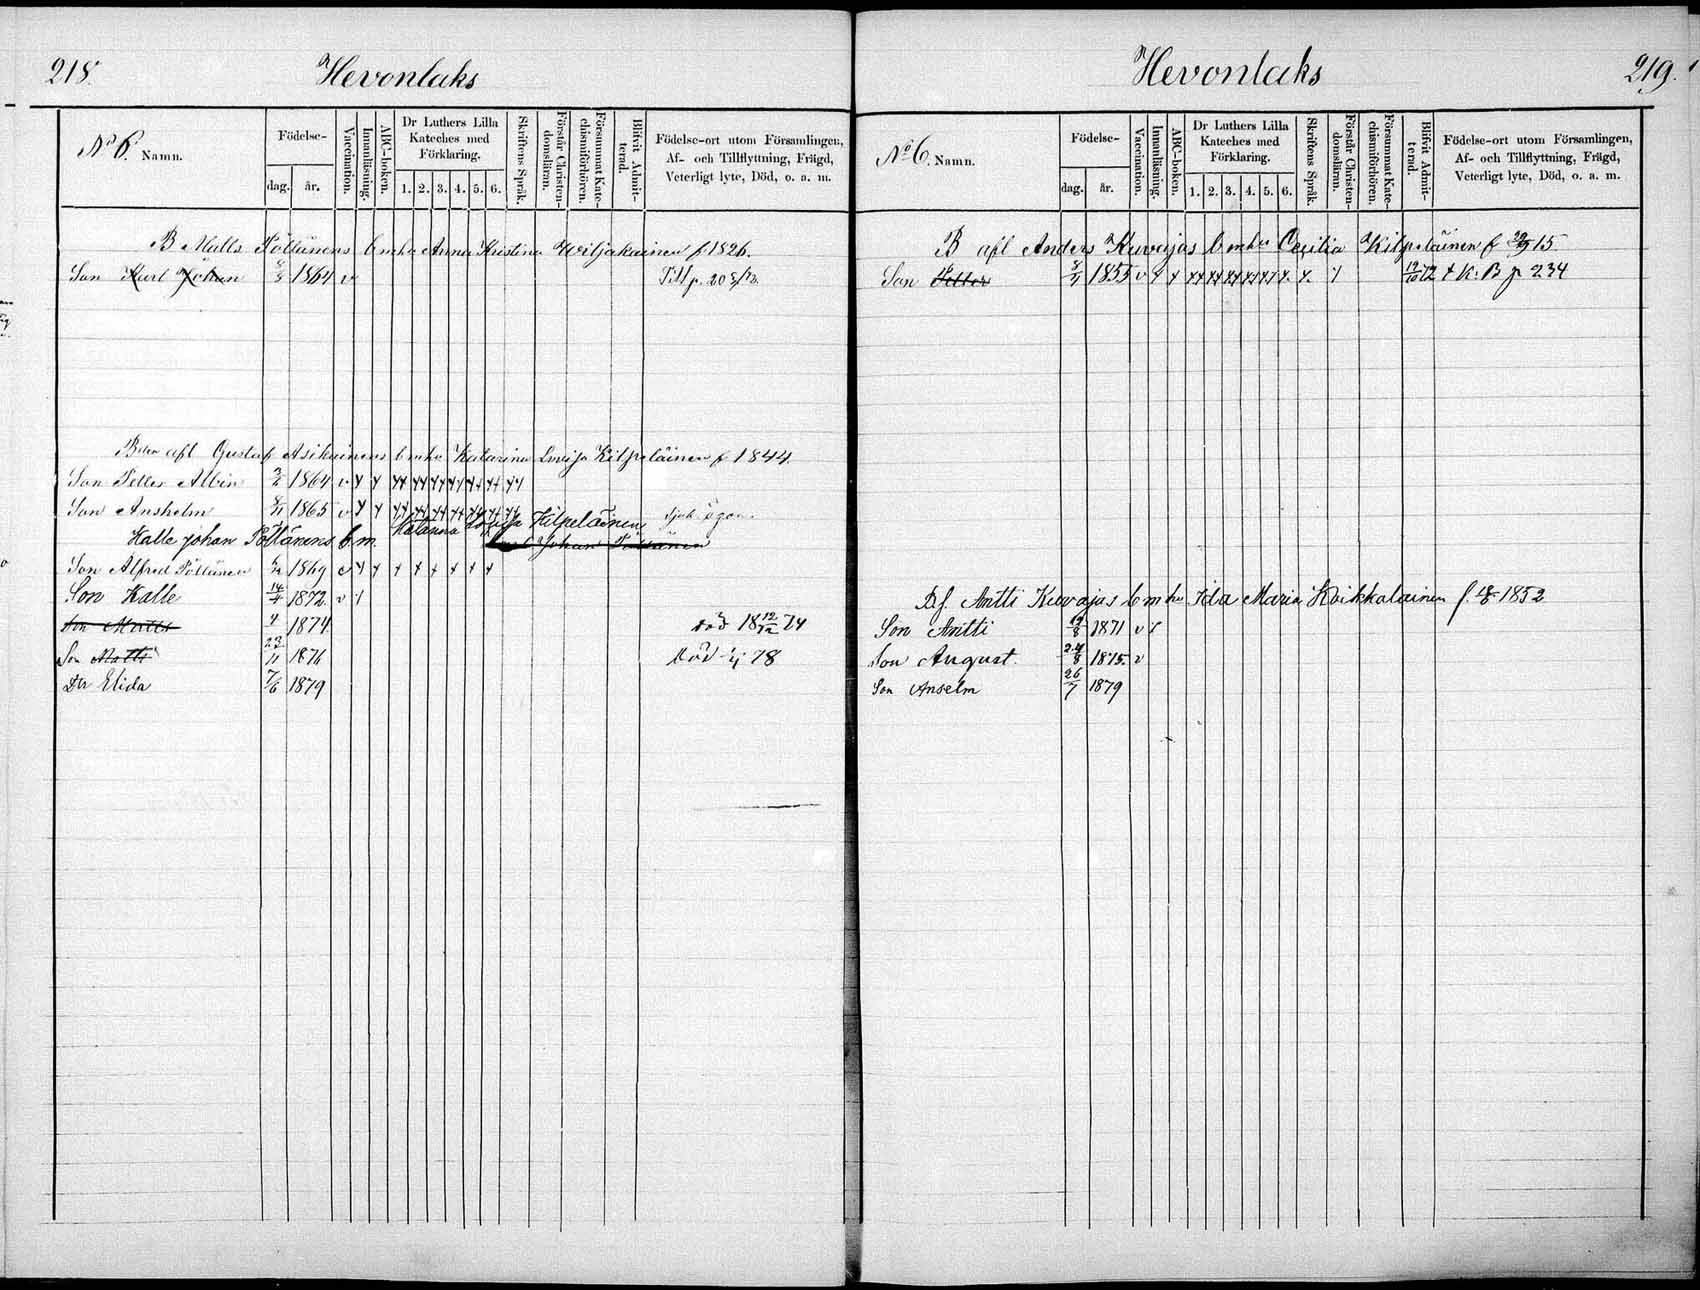 218.
Hevonlaks
No 6. Namn.
Födelse-
dag. år.
Vaccination.
Innanläsning.
ABC-boken.
Dr Luthers Lilla Kateches med Förklaring.
1. 2. 3. 4. 5. 6.
Skriftens Språk.
Förstår Christendomsläran.
Försummat Katechismiförhören.
Blifvit Admitterad.
Födelse-ort utom Församlingen,
Af- och Tillflyttning, Frägd,
Veterligt lyte, Död, o. a. m.
B Matts Pöllänens Enka Anna Kristina Wiljakainen f 1826.
Son Karl Johan 1864 v Till p. 20
B afl Gustaf Asikainens Enka Katarina Lovisa Kilpeläinen f 1844.
Son Petter Albin 1864 v
Son Anshelm 1865 v
Kalle Johan Pöllänens h.m. Katarina Lovisa Kilpeläinen
Son Alfred Pöllänen 1869 v
Son Kalle 14/4 1872 v
Son Matts 1874. död 18 12/12 74
Son Matti 23/11 1876 död 78
Dtr Elida 7/6 1879
Hevonlaks
219.
No 6. Namn.
Födelse-
dag. år.
Vaccination.
Innanläsning.
ABC-boken.
Dr Luthers Lilla Kateches med Förklaring.
1. 2. 3. 4. 5. 6.
Skriftens Språk.
Förstår Christendomsläran.
Försummat Katechismiförhören.
Blifvit Admitterad.
Födelse-ort utom Församlingen,
Af- och Tillflyttning, Frägd,
Veterligt lyte, Död, o. a. m.
B afl Anders Kuvajas Enka Cecilia Kilpeläinen f 15.
Son Petter 1855 v 19/10 72 K. B p 234
B.f. Antti Kuvajas h m Ida Maria Koikkalainen f. 1852
Son Antti 19/8 1871 v
Son August. 24/8 1875. v
Son Anselm 26/7 1879